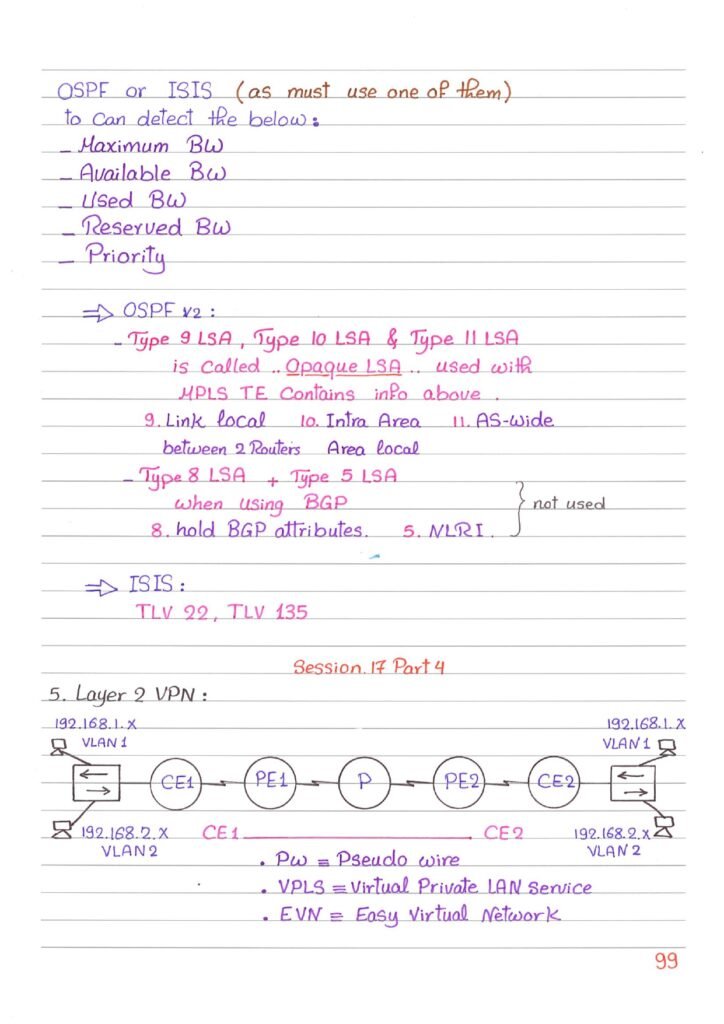 OSPF or ISIS (as must use one of them)
to Can detect the below:
- Maximum BW
- Available BW
- Used BW
- Reserved BW
- Priority
⇒ OSPF v2:
- Type 9 LSA, Type 10 LSA & Type 11 LSA
is called .. Opaque LSA .. used with
MPLS TE Contains info above.
9. Link local 10. Intra Area 11. AS-wide
between 2 Routers Area local
- Type 8 LSA + Type 5 LSA
when using BGP
not used
8. hold BGP attributes. 5. NLRI.
⇒ ISIS:
TLV 22, TLV 135
Session.17 Part 4
5. Layer 2 VPN:
192.168.1.X 192.168.1.X
VLAN1 VLAN1
CE1 PE1 P PE2 CE2
192.168.2.X CE1 CE2 192.168.2.X
VLAN2 VLAN2
• PW ≡ Pseudo wire
• VPLS ≡ Virtual Private LAN Service
• EVN ≡ Easy Virtual Network
99